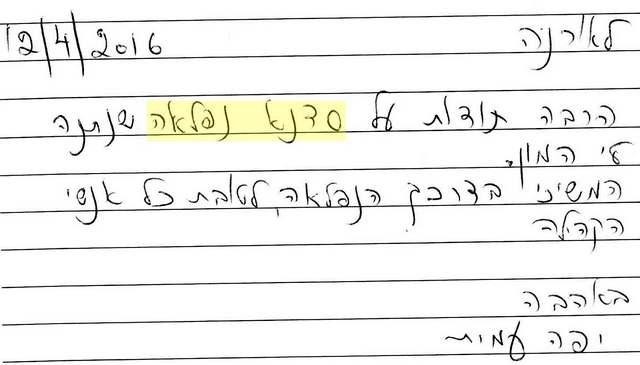 12/4/2016
לאורנה
הרבה תודות על סדנא נפלאה שנתנה
לי המון.
המשיכי בדרכך הנפלאה, לטובת כל אנשי
הקהילה
באהבה
יפה עמית